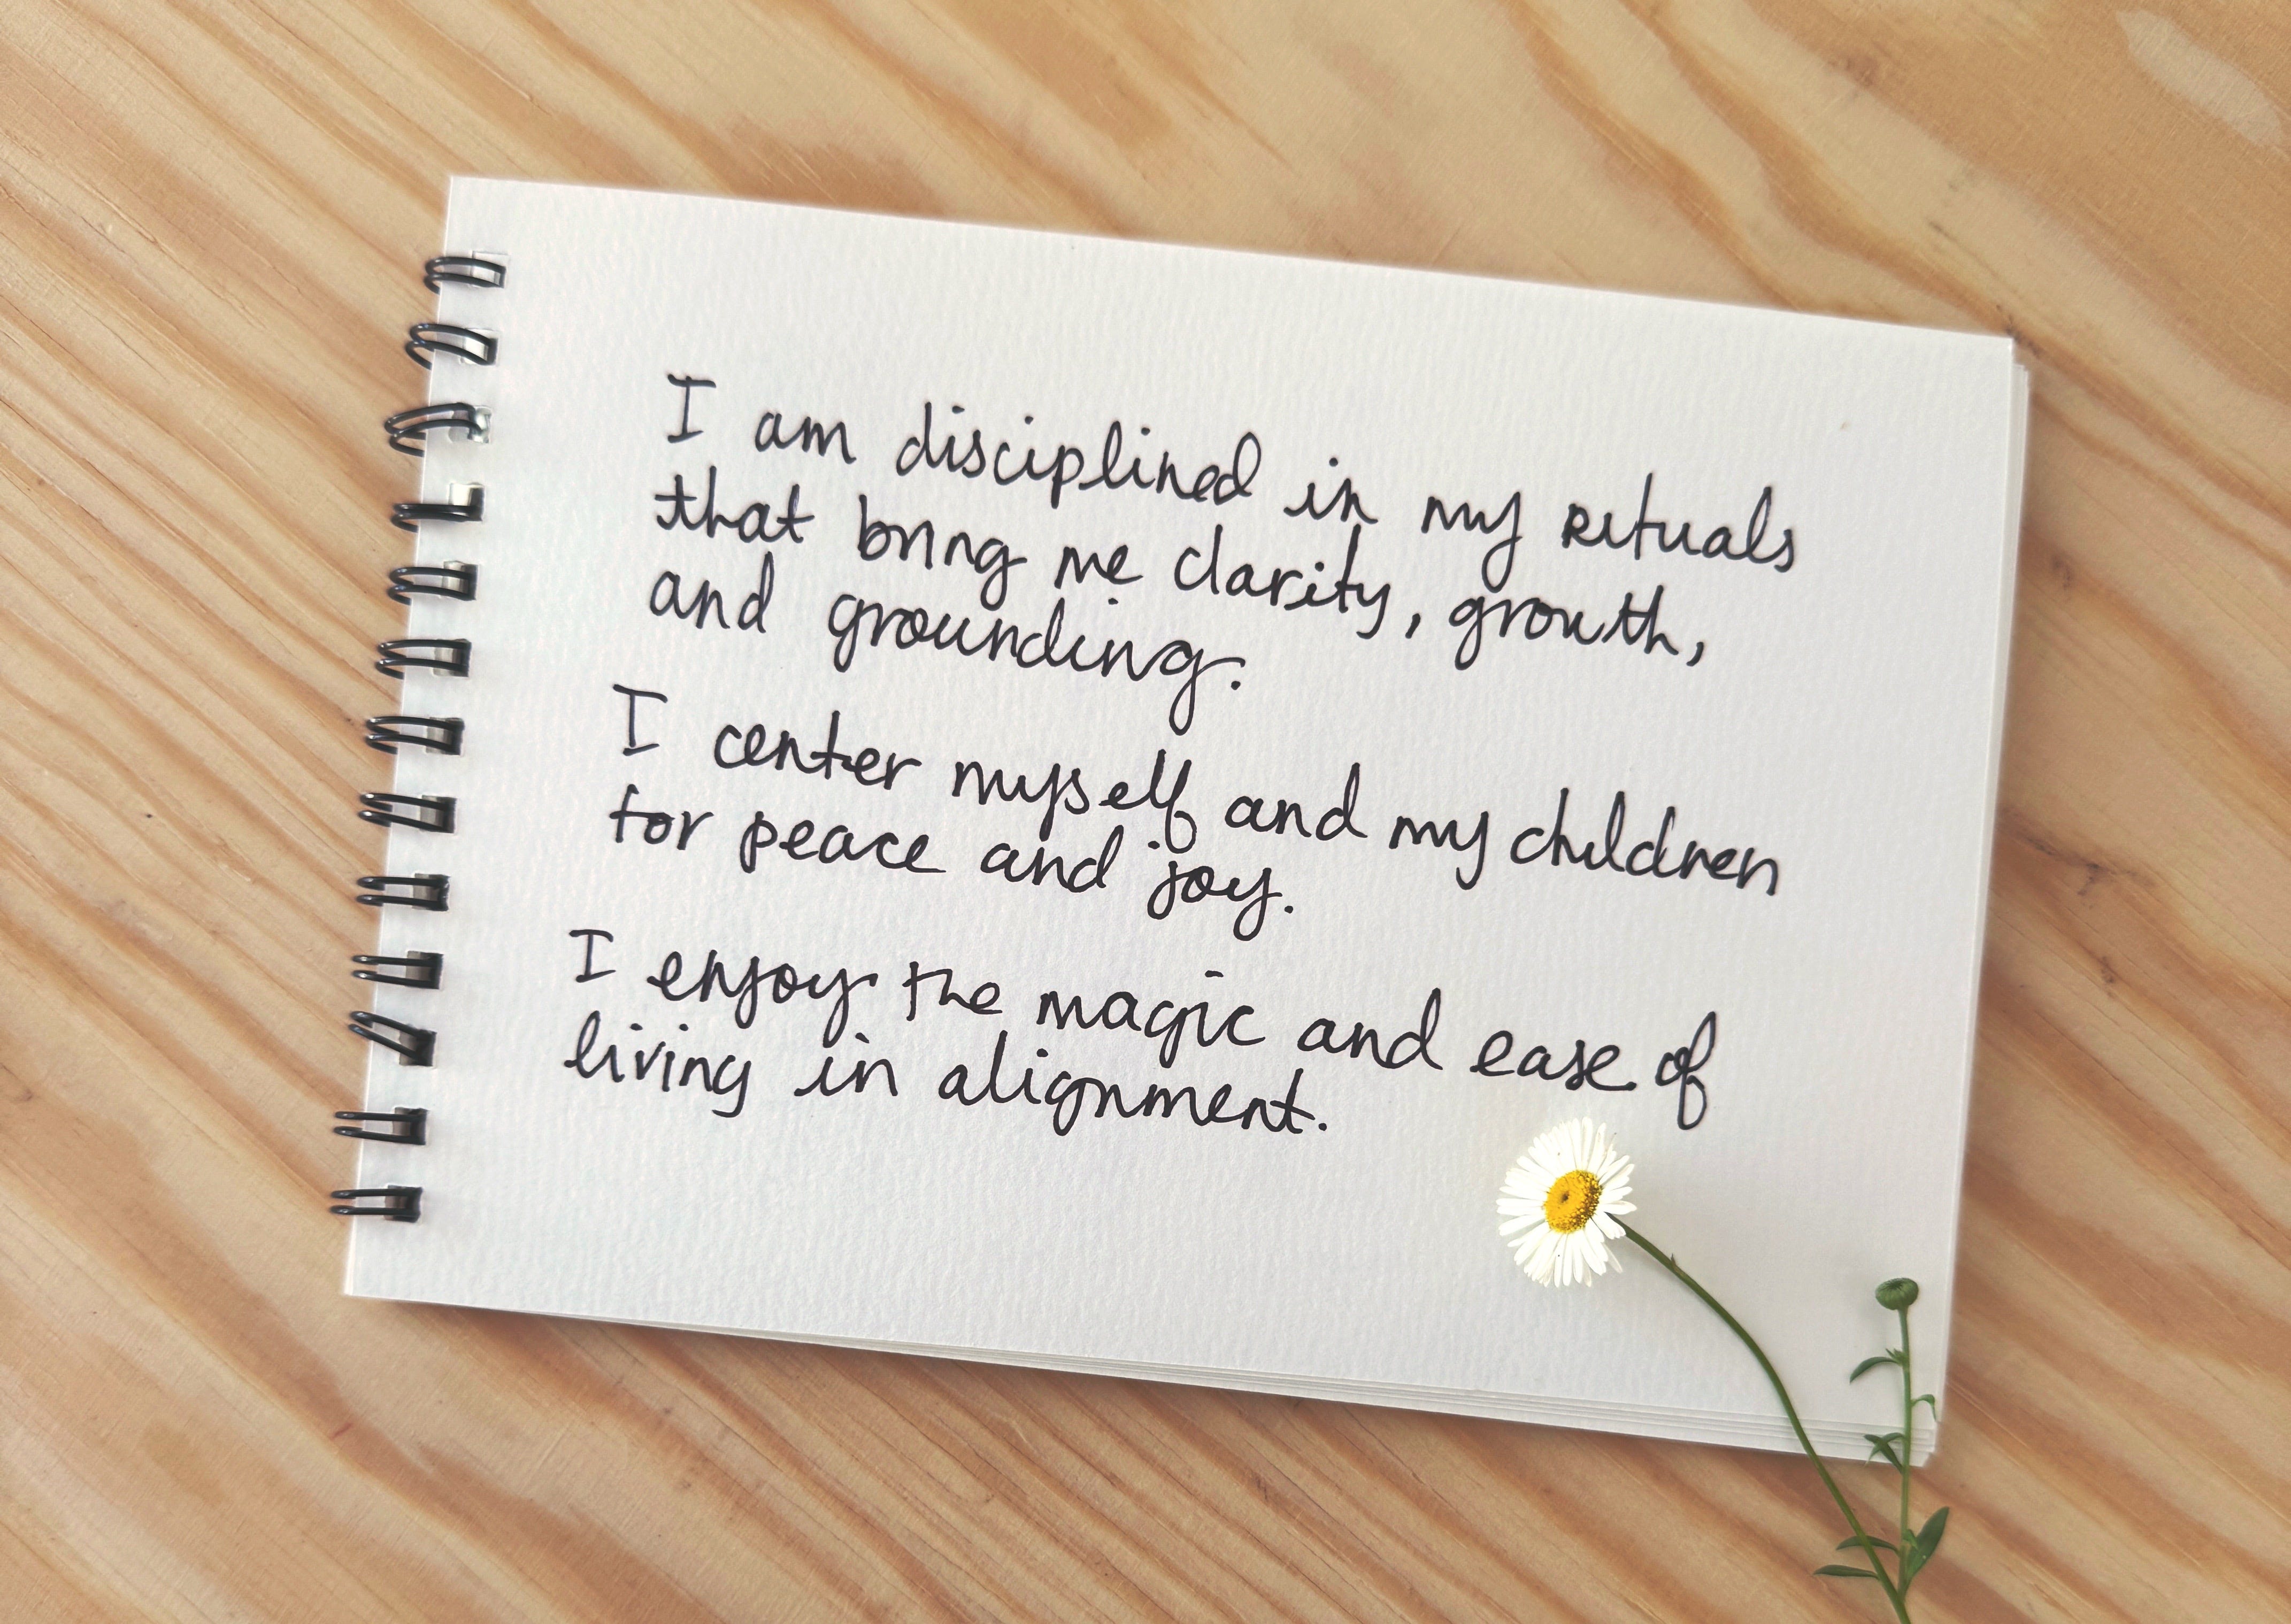 I am disciplined in my rituals
that bring me clarity, growth,
and grounding.
I center myself and my children
for peace and joy.
I enjoy the magic and ease of
living in alignment.